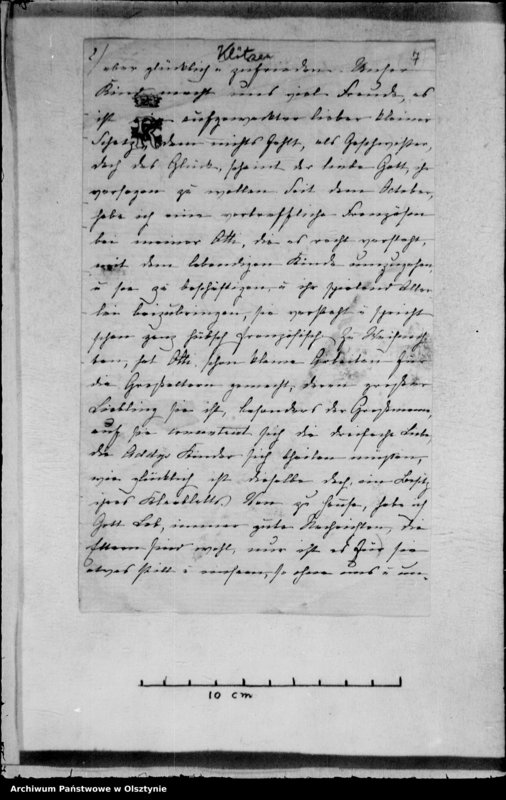 2)
Klitzen
7
aber glücklich u zufrieden. Unser
Kind macht uns viel Freude, es
ist aufgeweckter lieber kleiner
Schatz, dem nichts fehlt, als Geschwister,
doch das Glück, scheint der liebe Gott, ihr
versagen zu wollen. Seit dem October,
habe ich eine vortreffliche Französin
bei meiner Otti, die es recht versteht,
mit dem lebendigen Kinde umzugehen,
u sie zu beschäftigen, u ihr spielend Aller
lei beizubringen, sie versteht u spricht
schon ganz hübsch französisch. Zu Weihnach
ten, hat Otti schon kleine Arbeiten für
die Großeltern gemacht, deren großer
Liebling sie ist, besonders der Großmama,
auf sie sich die dreifache Liebe,
die Kinder sich theilen müßten,
wie glücklich ist dieselbe doch, im Besitz
ihres Kleeblatts. Von zu Hause, habe ich
Gott Lob, immer gute Nachrichten, die
Eltern sind wohl, nur ist es für sie
etwas still u einsam, so ohne uns u un-
10 cm
Archiwum Państwowe w Olsztynie